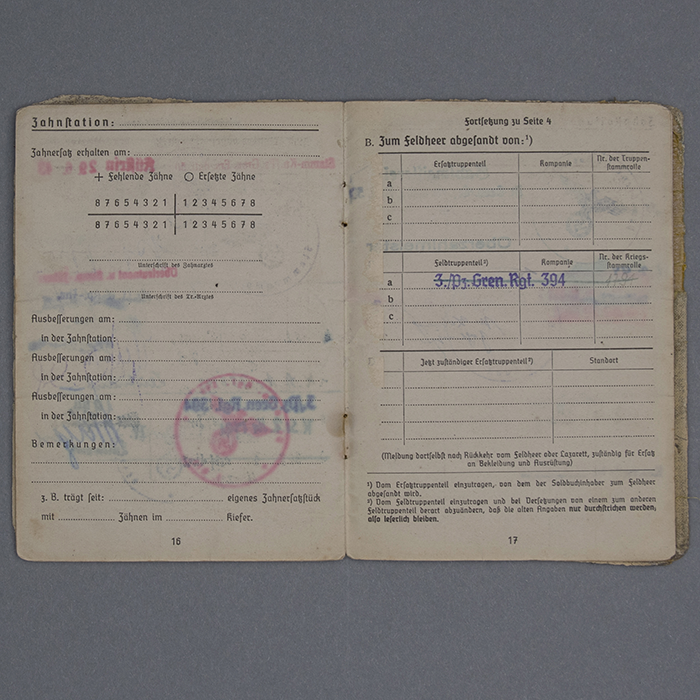 Zahnstation:
Zahnersatz erhalten am:
+ Fehlende Zähne O Ersetzte Zähne
8 7 6 5 4 3 2 1 1 2 3 4 5 6 7 8
8 7 6 5 4 3 2 1 1 2 3 4 5 6 7 8
Unterschrift des Zahnarztes
Unterschrift des Tr.-Arztes
Ausbesserungen am:
in der Zahnstation:
Ausbesserungen am:
in der Zahnstation:
Ausbesserungen am:
in der Zahnstation:
Bemerkungen:
z. B. trägt seit: eigenes Zahnersatzstück
mit Zähnen im Kiefer.
16
Fortsetzung zu Seite 4
B. Zum Feldheer abgesandt von:¹)
Ersatztruppenteil Kompanie Nr. der Truppen-
stammrolle
a
b
c
Feldtruppenteil²) Kompanie Nr. der Kriegs-
stammrolle
a 3./Pz.Gren.Rgt. 394
b
c
Jetzt zuständiger Ersatztruppenteil²) Standort
(Meldung dortselbst nach Rückkehr vom Feldheer oder Lazarett, zuständig für Ersatz
an Bekleidung und Ausrüstung)
¹) Vom Ersatztruppenteil einzutragen, von dem der Soldbuchinhaber zum Feldheer
abgesandt wird.
²) Vom Feldtruppenteil einzutragen und bei Versetzungen von einem zum anderen
Feldtruppenteil derart abzuändern, daß die alten Angaben nur durchstrichen werden,
also leserlich bleiben.
17